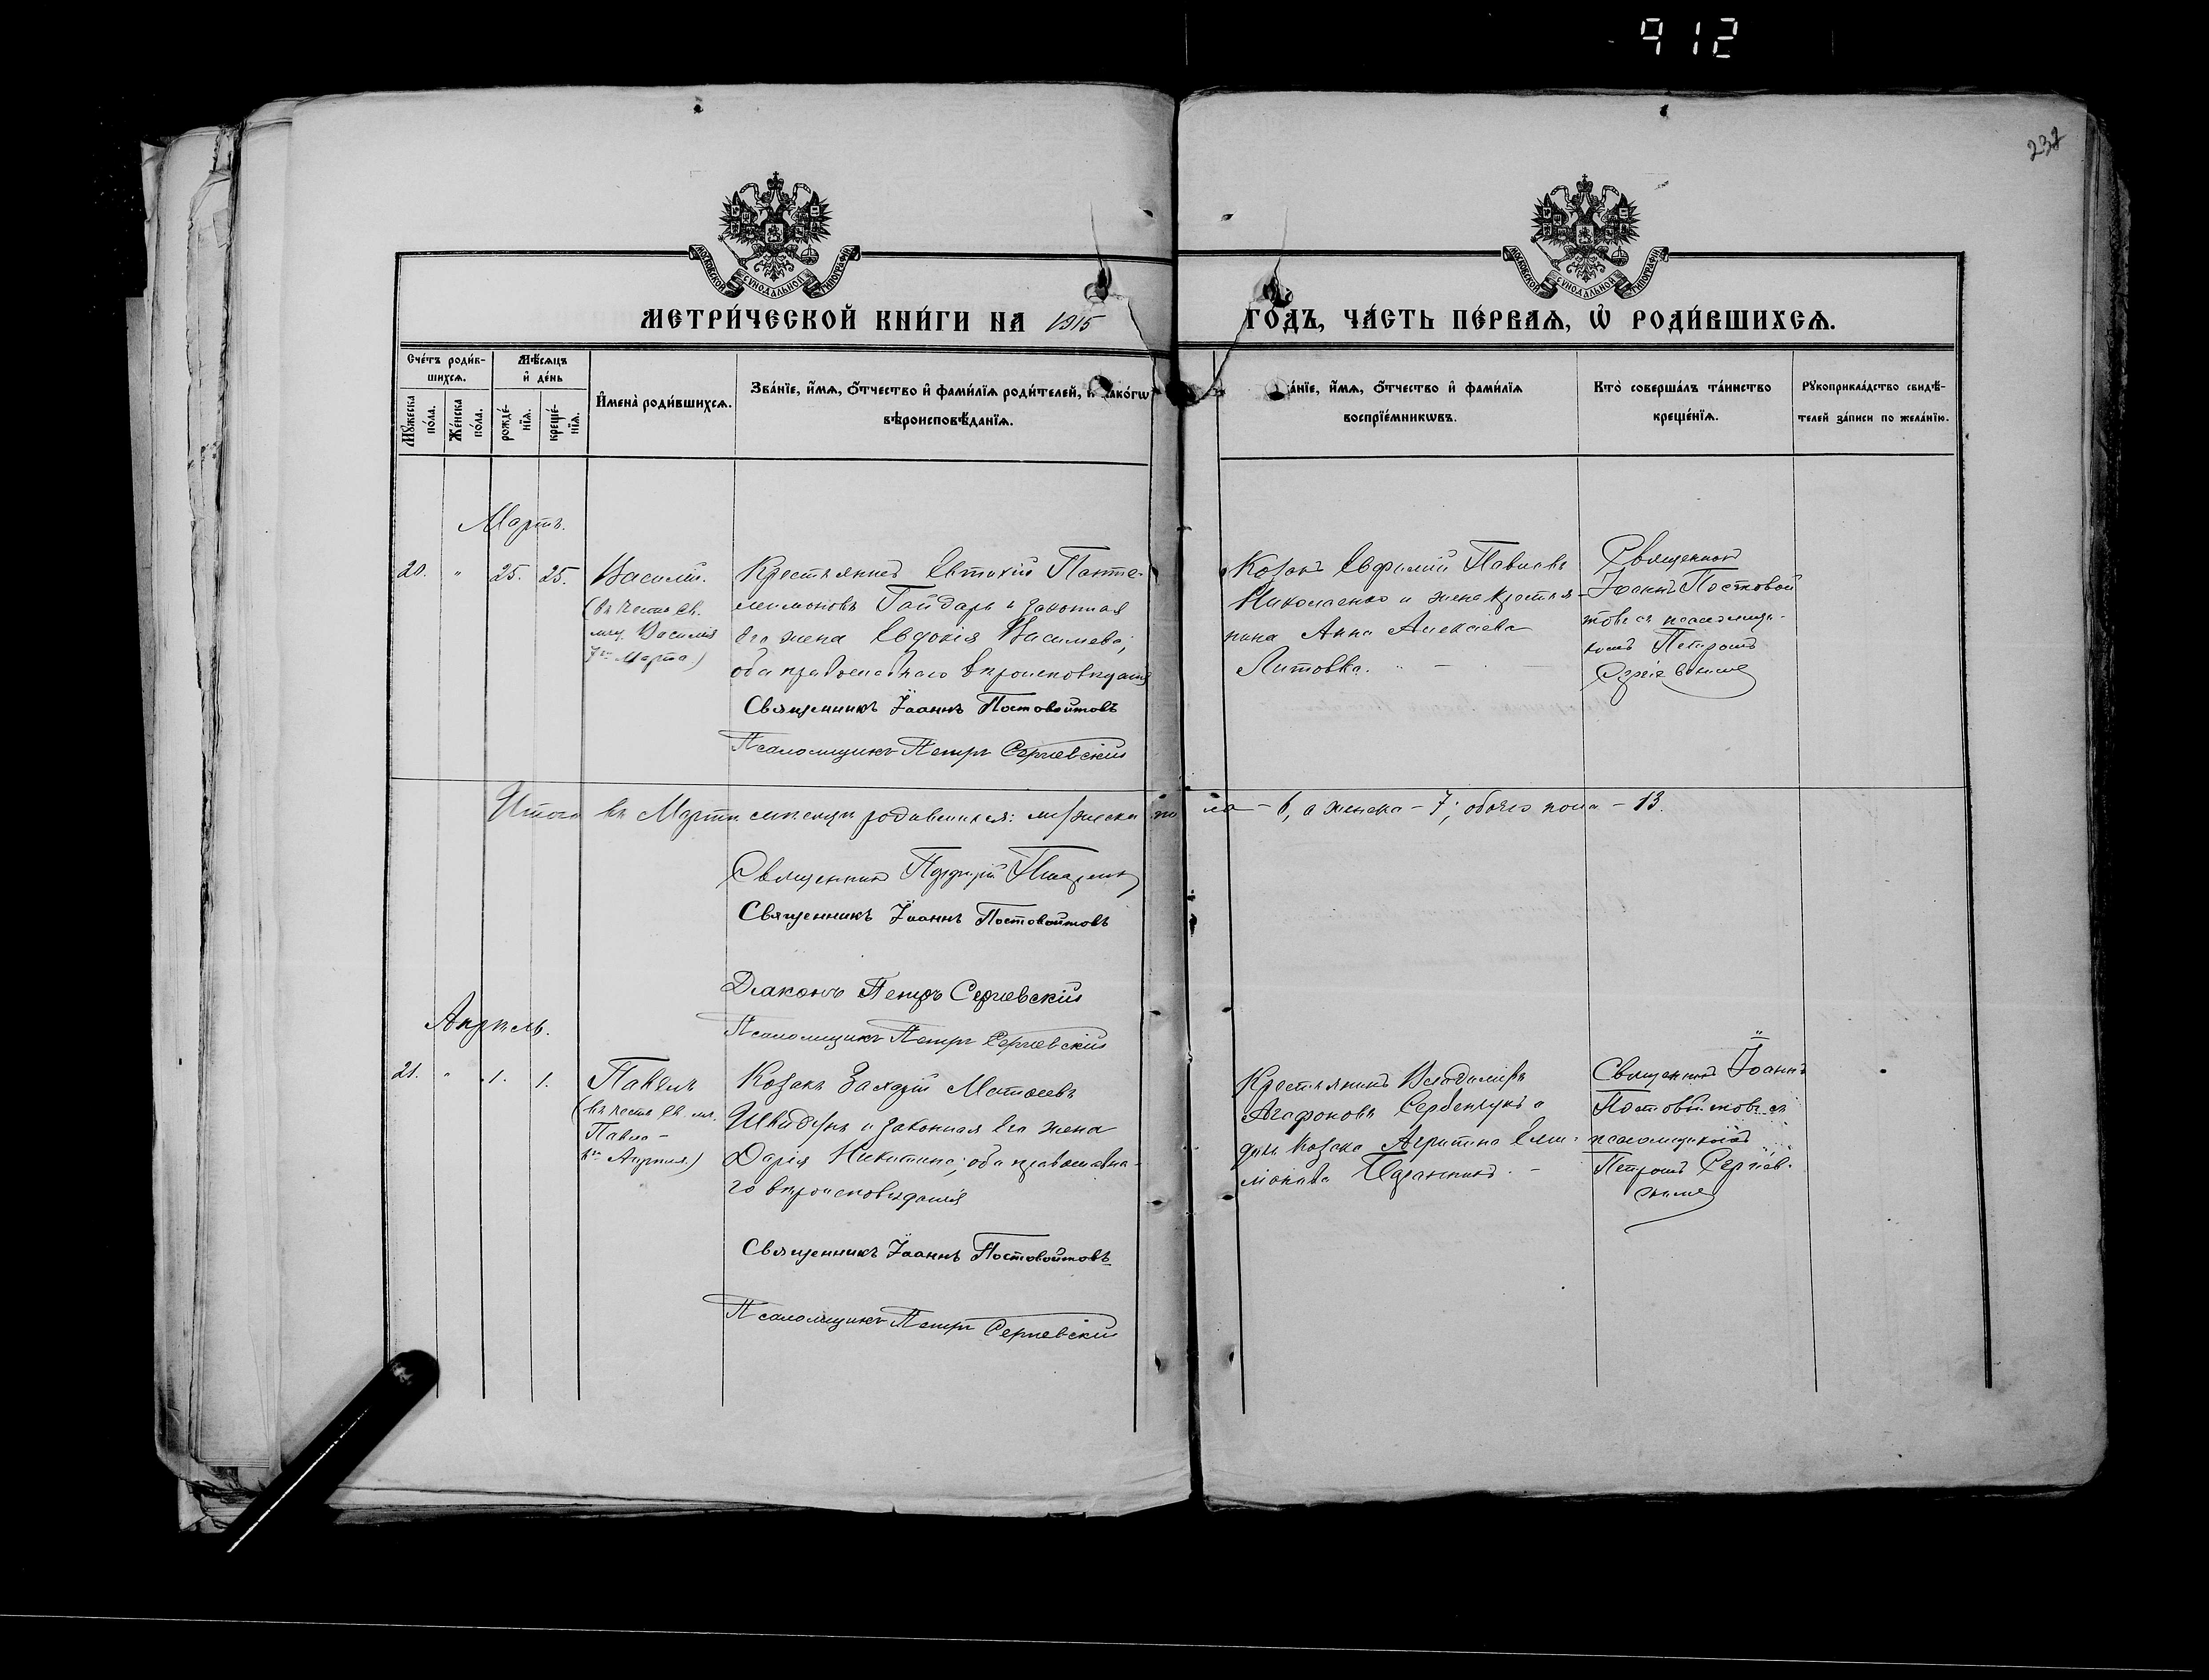 912
238
МОСКОВСКОЙ СѴНОДАЛЬНОЙ ТИПОГРАФІИ
МОСКОВСКОЙ СѴНОДАЛЬНОЙ ТИПОГРАФІИ
МЕТРИ́ЧЕСКОЙ КНИ́ГИ НА 1915
ГО́ДЪ, ЧА́СТЬ ПЕ́РВАѦ, Ѡ РОДИ́ВШИХСѦ.
Сче́тъ роди́в-
шихсѧ.
Мꙋжеска по́ла.
Же́нска по́ла.
Мѣ́сѧцъ
и҆ де́нь
рожде́-
нїѧ.
креще́-
нїѧ.
И҆мена̀ роди́вшихсѧ.
Зва́нїе, и҆́мѧ, ѻ҆́тчество и҆ фами́лїѧ роди́телей, и҆ како́гѡ
вѣроисповѣ́данїѧ.
а́нїе, и҆́мѧ, ѻ҆́тчество и҆ фами́лїѧ
воспрїе́мникѡвъ.
Кто̀ соверша́лъ та́инство
креще́нїѧ.
Рꙋкоприкла́дство свидѣ́-
телей за́писи по жела́нїю.
Мартъ.
20. " 25. 25. Василій.
(въ честь св.
мч. Василія
7го Марта)
Крестьянинъ Евтихій Панте-
леимоновъ Гайдарь и законная
его жена Евдокія Васильева;
оба православнаго вѣроисповѣданія
Священникъ Іоаннъ Постовойтовъ
Псаломщикъ Петръ Сергіевскій
Козакъ Евфимій Павловъ
Николаенко и жена крестья-
нина Анна Алексіева
Литовка.
Священникъ
Іоаннъ Постовой
товъ съ псаломщи-
комъ Петромъ
Сергіевскимъ
Итого въ Мартѣ мѣсяцѣ родившихся: мужеска по
ла - 6, а женска - 7; обоего пола - 13.
Священникъ
Священникъ Іоаннъ Постовойтовъ
Діаконъ Петръ Сергіевскій
Псаломщикъ Петръ Сергіевскій
Апрѣль.
21. " 1. 1. Павелъ
(въ честь св. мч.
Павла -
Апрѣля.)
Козакъ Захарій Матѳеевъ
Швидунъ и законная его жена
Дарія Никитина; оба православна-
го вѣроисповѣданія
Священникъ Іоаннъ Постовойтовъ
Псаломщикъ Петръ Сергіевскій
Крестьянинъ Владиміръ
Агафоновъ Сербенчукъ и
дочь козака Агрипина
Священникъ Іоаннъ
Постовойтовъ съ
псаломщикомъ
Петромъ Сергіев-
скимъ